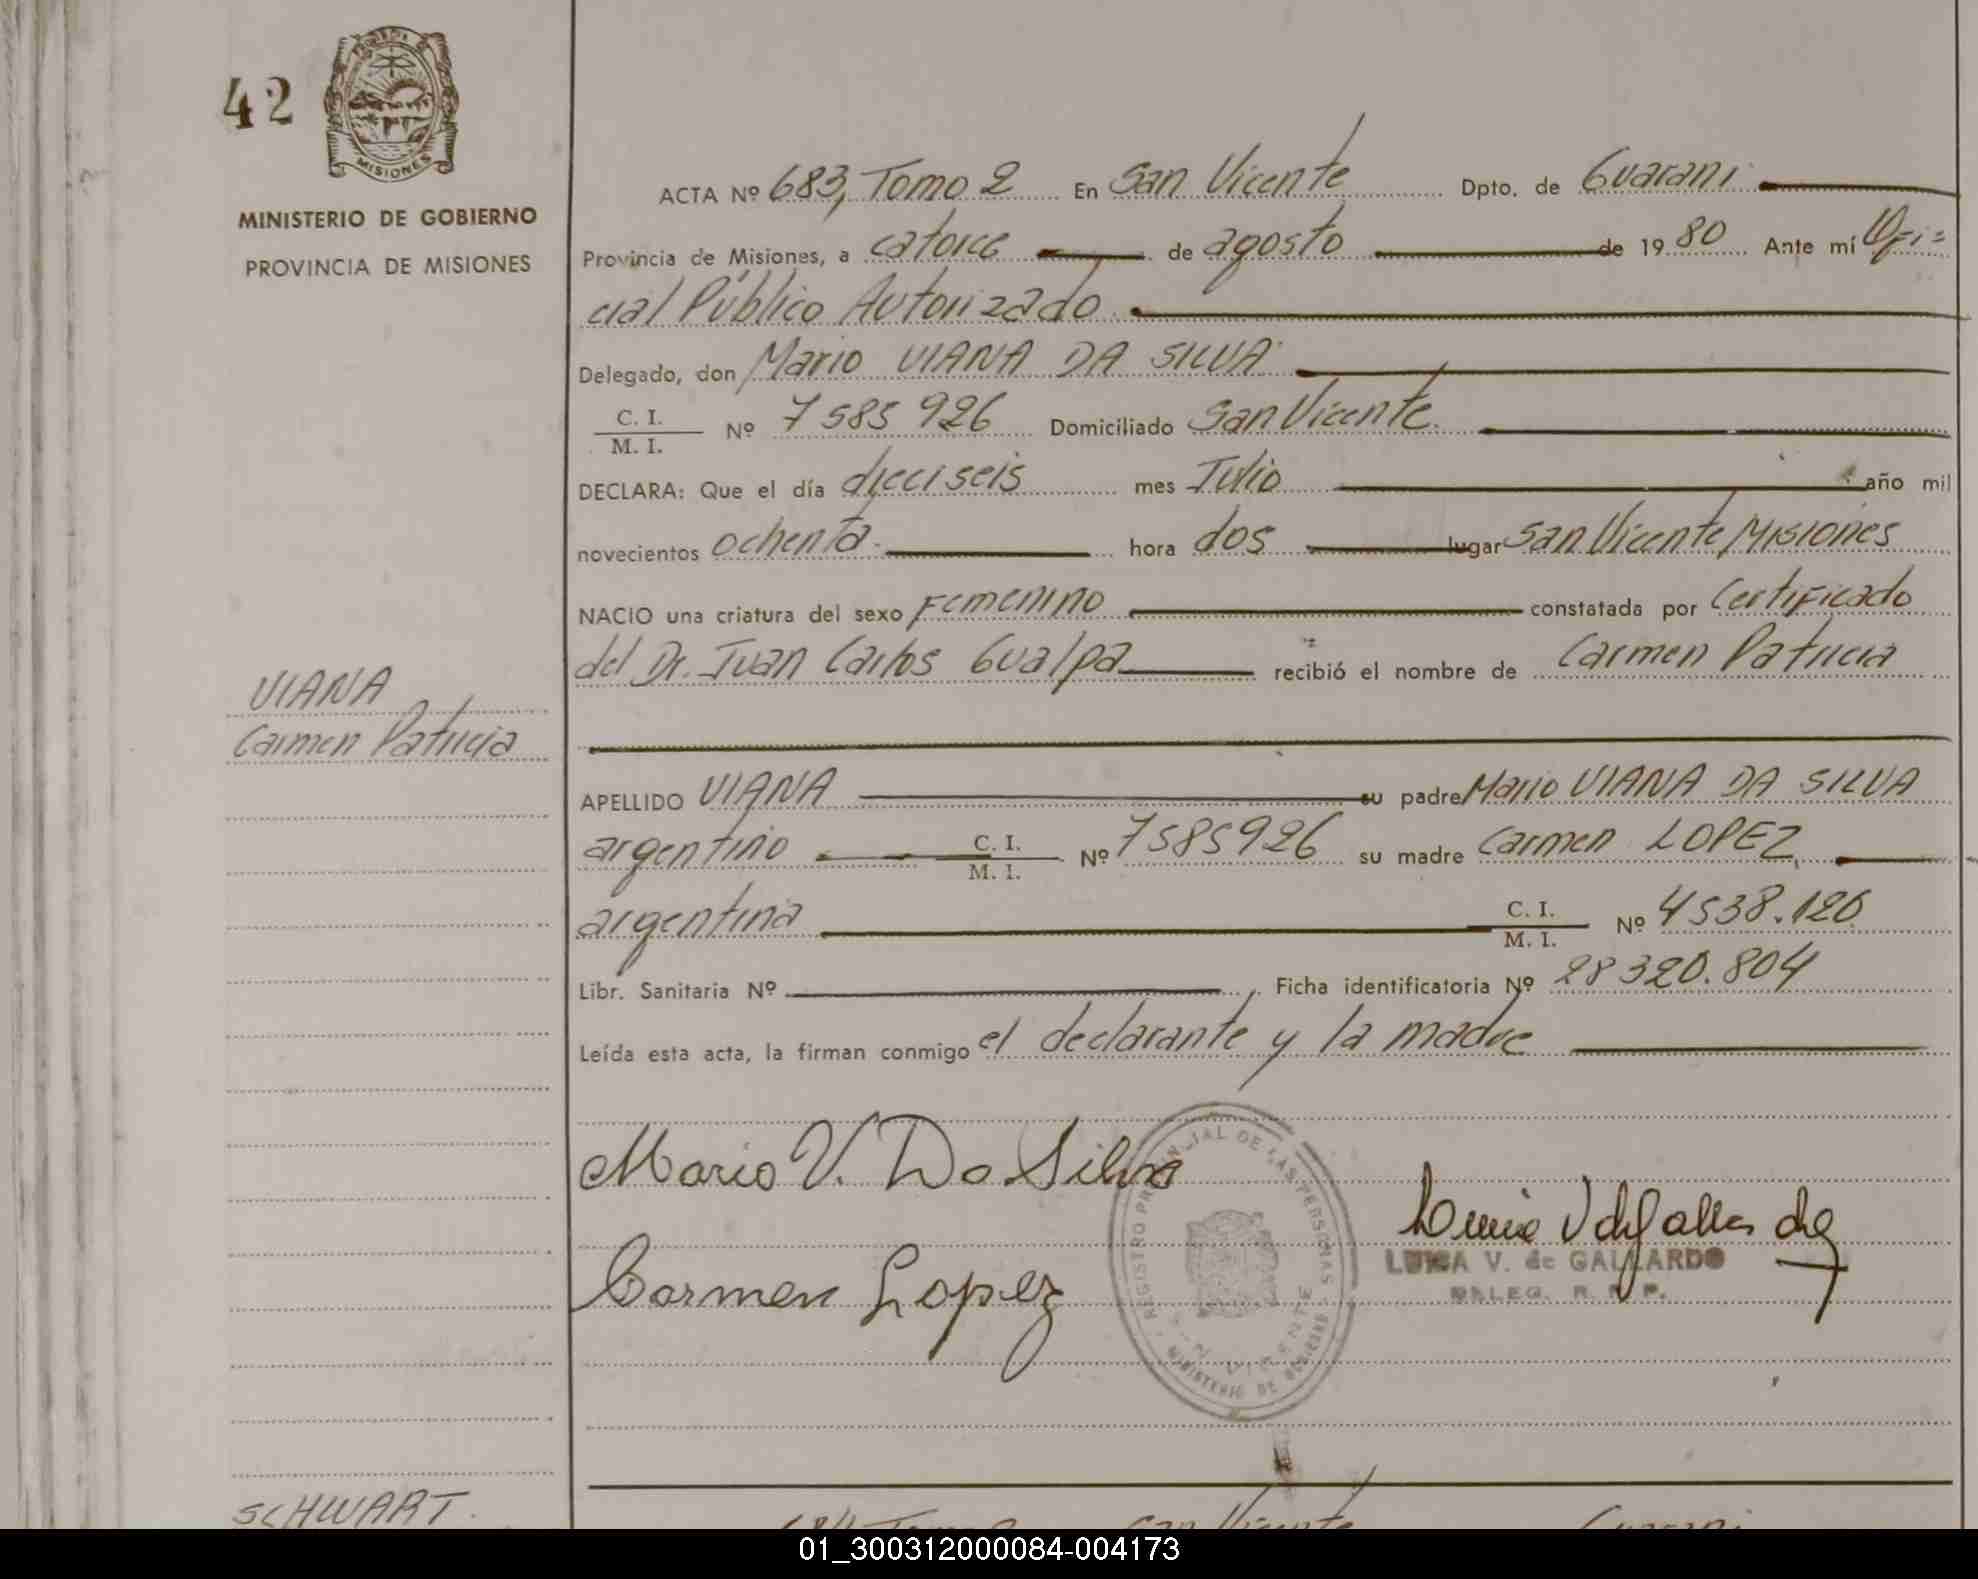 42
MISIONES
MINISTERIO DE GOBIERNO
PROVINCIA DE MISIONES
ACTA Nº 683, Tomo 2 En San Vicente Dpto. de Guaraní
Provincia de Misiones, a catorce de agosto de 1980 Ante mí Ofi=
cial Público Autorizado
Delegado, don Mario VIANA DA SILVA
C. I. / M. I. Nº 7585926 Domiciliado San Vicente
DECLARA: Que el día dieciseis mes Julio año mil
novecientos ochenta hora dos lugar San Vicente, Misiones
NACIO una criatura del sexo Femenino constatada por Certificado
del Dr. Juan Carlos Gualpa recibió el nombre de Carmen Patricia
VIANA
Carmen Patricia
APELLIDO VIANA su padre Mario VIANA DA SILVA
argentino C. I. / M. I. Nº 7585926 su madre Carmen LOPEZ,
argentina C. I. / M. I. Nº 4538.126
Libr. Sanitaria Nº Ficha identificatoria Nº 28320.804
Leída esta acta, la firman conmigo el declarante y la madre
Mario V. Da Silva
Carmen Lopez
REGISTRO PROVINCIAL DE LAS PERSONAS
MINISTERIO DE GOBIERNO
LUISA V. de GALLARDO
DELEG. R. P. P.
SCHWART
684 Tomo 2 San Vicente Guaraní
01_300312000084-004173